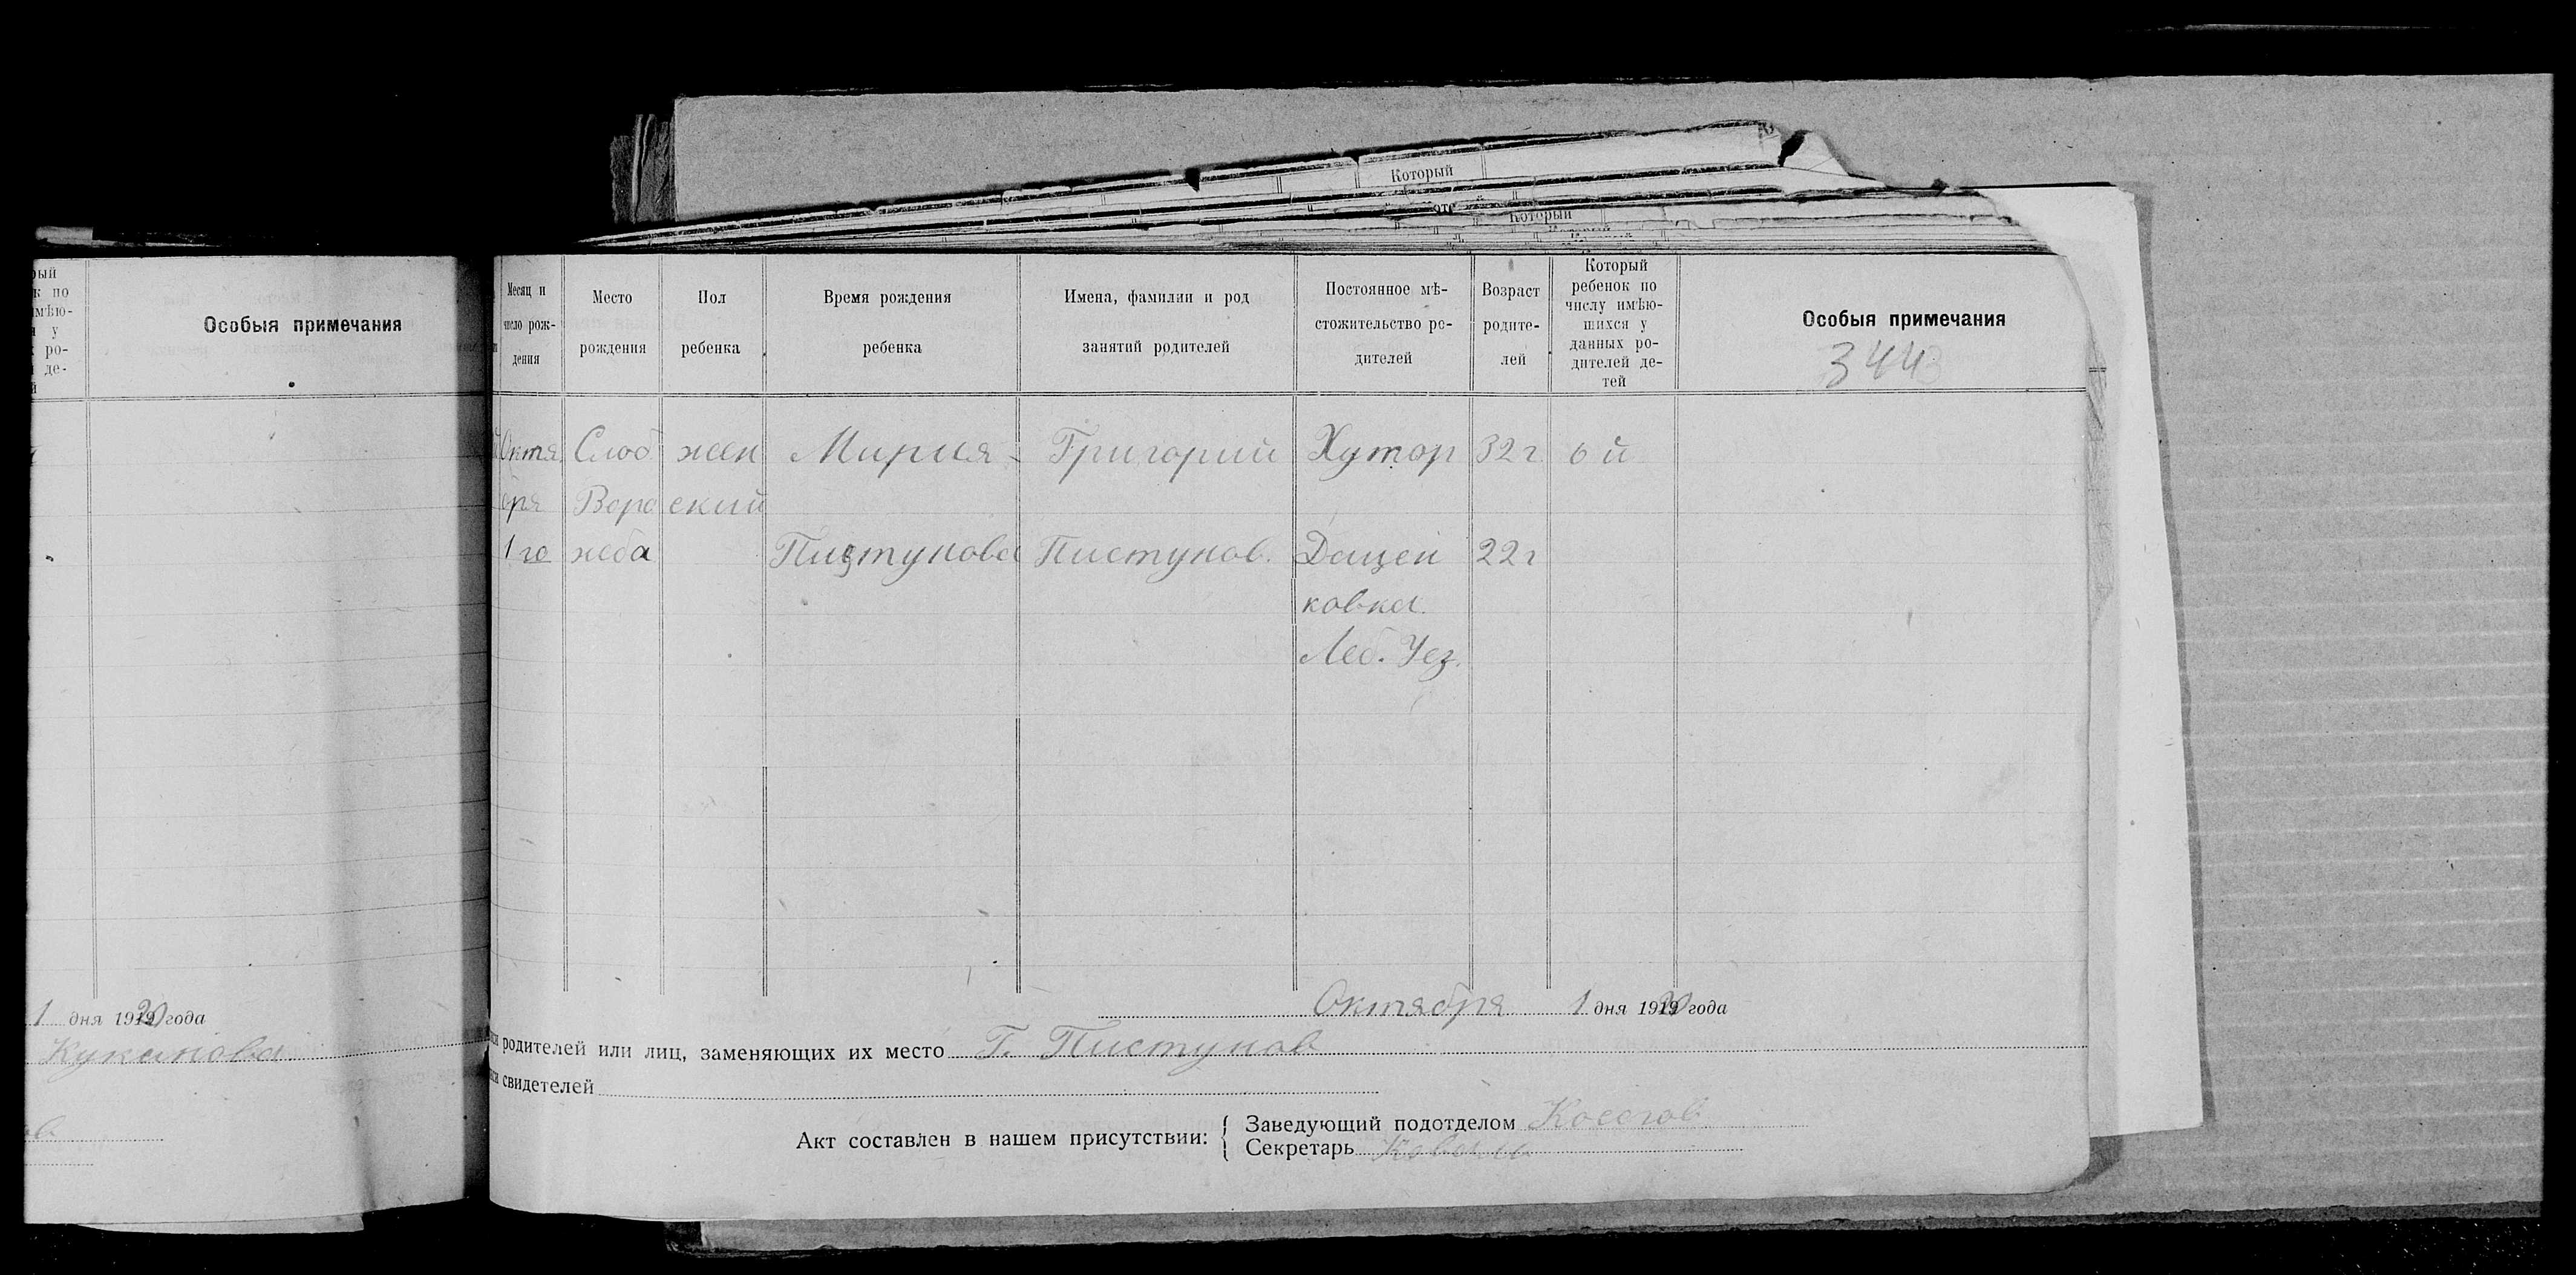 Который
Который
рый
к по
имѣю-
я у
х ро-
й де-
й
Особыя примечания
1 дня 1920 года
Куканова
ов
Месяц и
число рож-
дения
Место
рождения
Пол
ребенка
Время рождения
ребенка
Имена, фамилии и род
занятий родителей
Постоянное мѣ-
стожительство ро-
дителей
Возраст
родите-
лей
Который
ребенок по
числу имѣю-
шихся у
данных ро-
дителей де-
тей
Особыя примечания
344
Октя Слоб жен Мария Григорий Хутор 32 г 6 й
бря Воро ский
1 го жба Пистунова Пистунов. Дацей 22 г
ковка.
Леб. Уез.
Октября 1 дня 1920 года
родителей или лиц, заменяющих их место Г. Пистунов
свидетелей
Акт составлен в нашем присутствии:
Заведующий подотделом
Секретарь Коваль